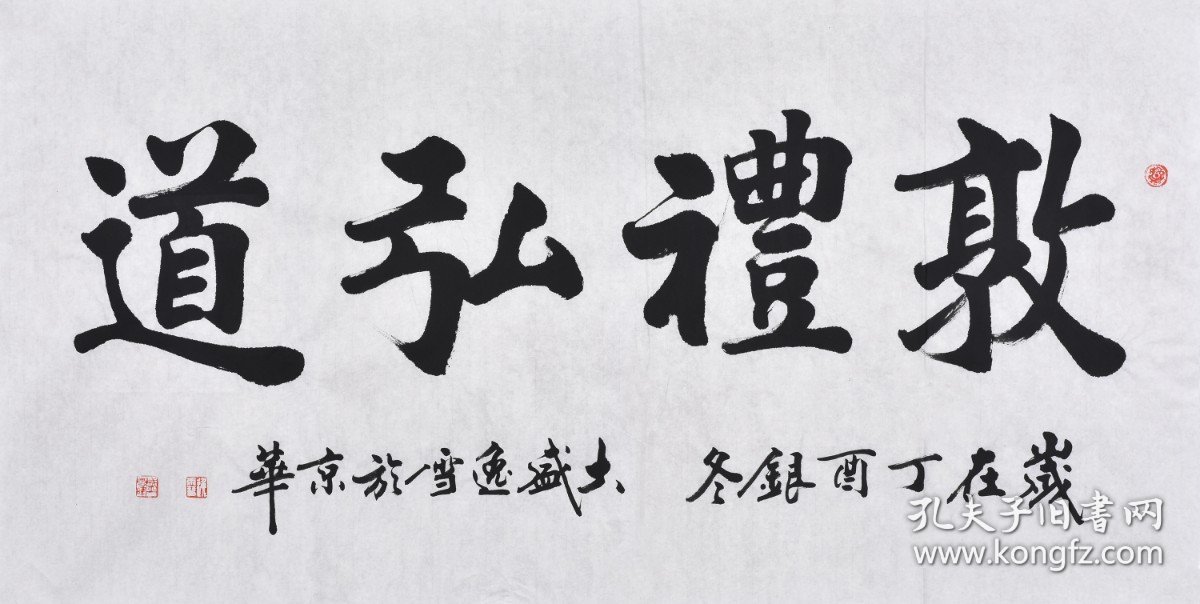 敦禮弘道
歲在丁酉銀冬 大盛逸雪於京華
孔夫子旧書网
www.kongfz.com